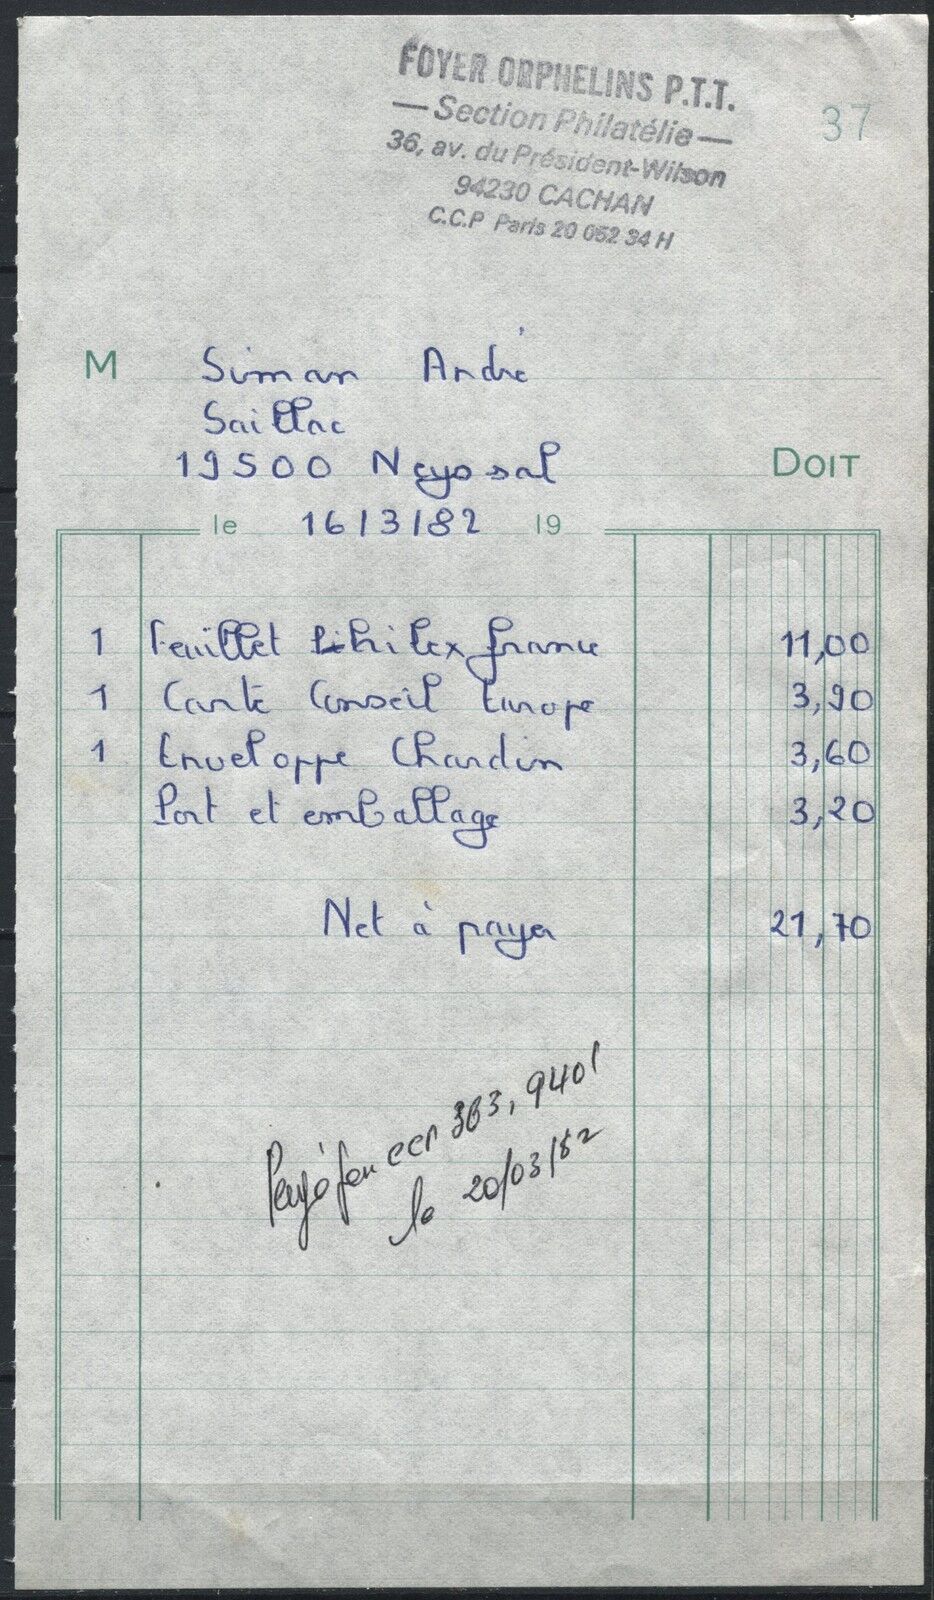 FOYER ORPHELINS P.T.T.
— Section Philatélie —
36, av. du Président-Wilson
94230 CACHAN
C.C.P Paris 20 052 34 H
37
M Siman André
Saillac
19500 Neyssal
DOIT
le 16/3/82 19
1 Feuillet Philex france 11,00
1 Carte Conseil Europe 3,90
1 Enveloppe Chardin 3,60
Port et emballage 3,20
Net à payer 21,70
Payé par CCP 363, 9401
le 20/03/82